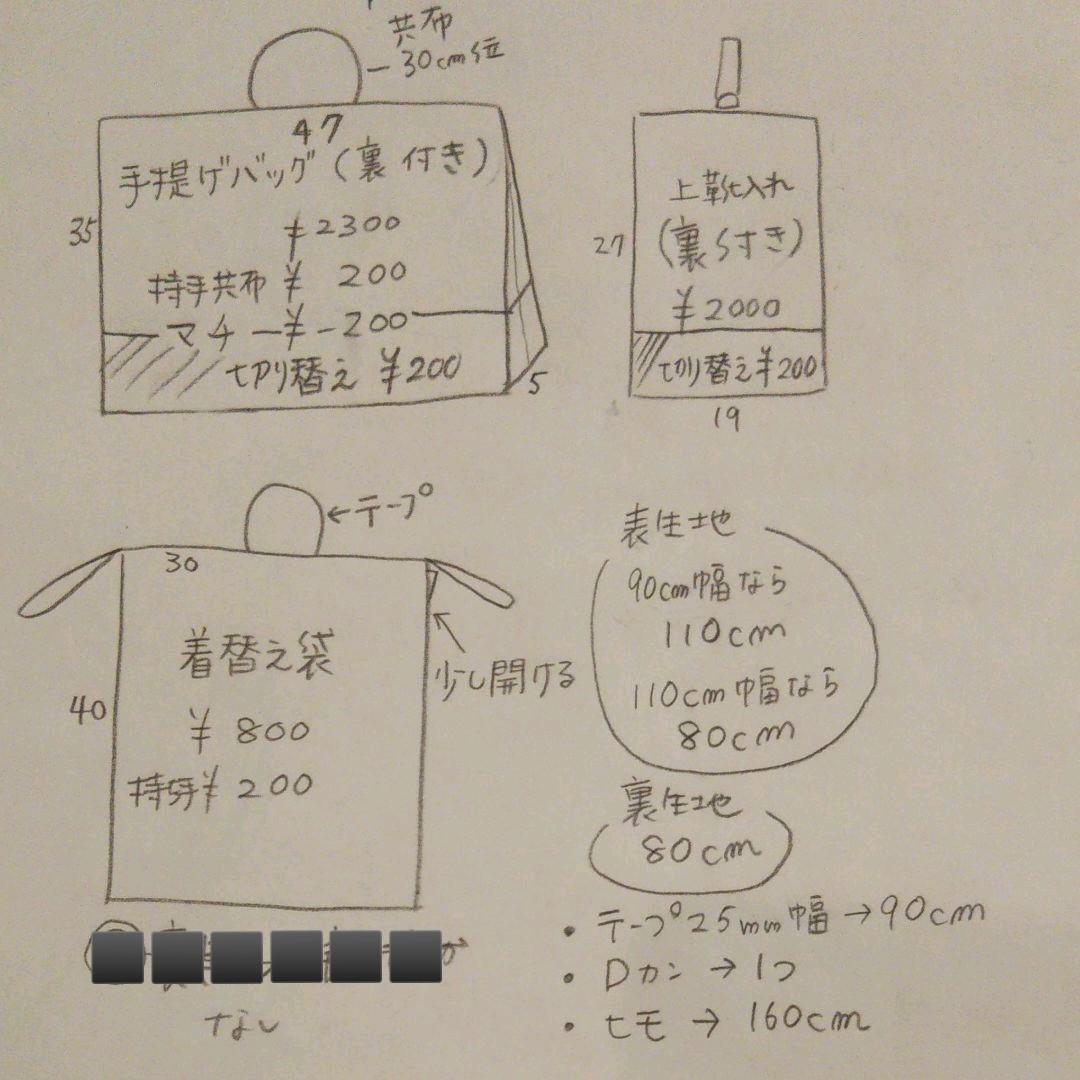 共布
30cm位
47
手提げバッグ(裏付き)
35
¥2300
持手共布 ¥ 200
マチ ー¥-200
切り替え ¥200
5
上靴入れ
27
(裏付き)
¥2000
切り替え¥200
19
←テープ
30
着替え袋
少し開ける
40
¥ 800
持手¥ 200
なし
表生地
90cm幅なら
110cm
110cm幅なら
80cm
裏生地
80cm
・テープ25mm幅→90cm
・Dカン→1つ
・ヒモ→160cm